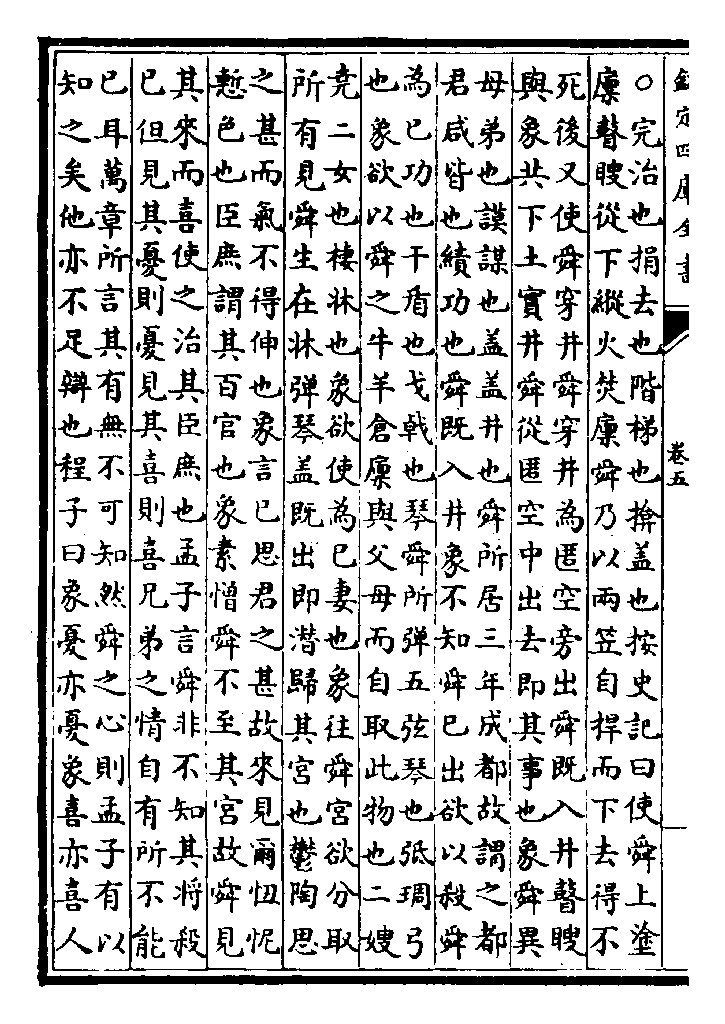 欽定四庫全書
卷五
○完治也捐去也階梯也揜盖也按史記曰使舜上塗
廩瞽瞍從下縱火焚廩舜乃以兩笠自捍而下去得不
死後又使舜穿井舜穿井為匿空旁出舜既入井瞽瞍
與象共下土實井舜從匿空中出去即其事也象舜異
母弟也謨謀也盖盖井也舜所居三年成都故謂之都
君咸皆也績功也舜既入井象不知舜已出欲以殺舜
為已功也干盾也戈戟也琴舜所弹五弦琴也弤琱弓
也象欲以舜之牛羊倉廩與父母而自取此物也二嫂
堯二女也棲牀也象欲使為已妻也象往舜宮欲分取
所有見舜生在牀弹琴盖既出即潜歸其宮也鬱陶思
之甚而氣不得伸也象言已思君之甚故來見爾忸怩
慙色也臣庶謂其百官也象素憎舜不至其宮故舜見
其來而喜使之治其臣庶也孟子言舜非不知其將殺
已但見其憂則憂見其喜則喜兄弟之情自有所不能
已耳萬章所言其有無不可知然舜之心則孟子有以
知之矣他亦不足辯也程子曰象憂亦憂象喜亦喜人